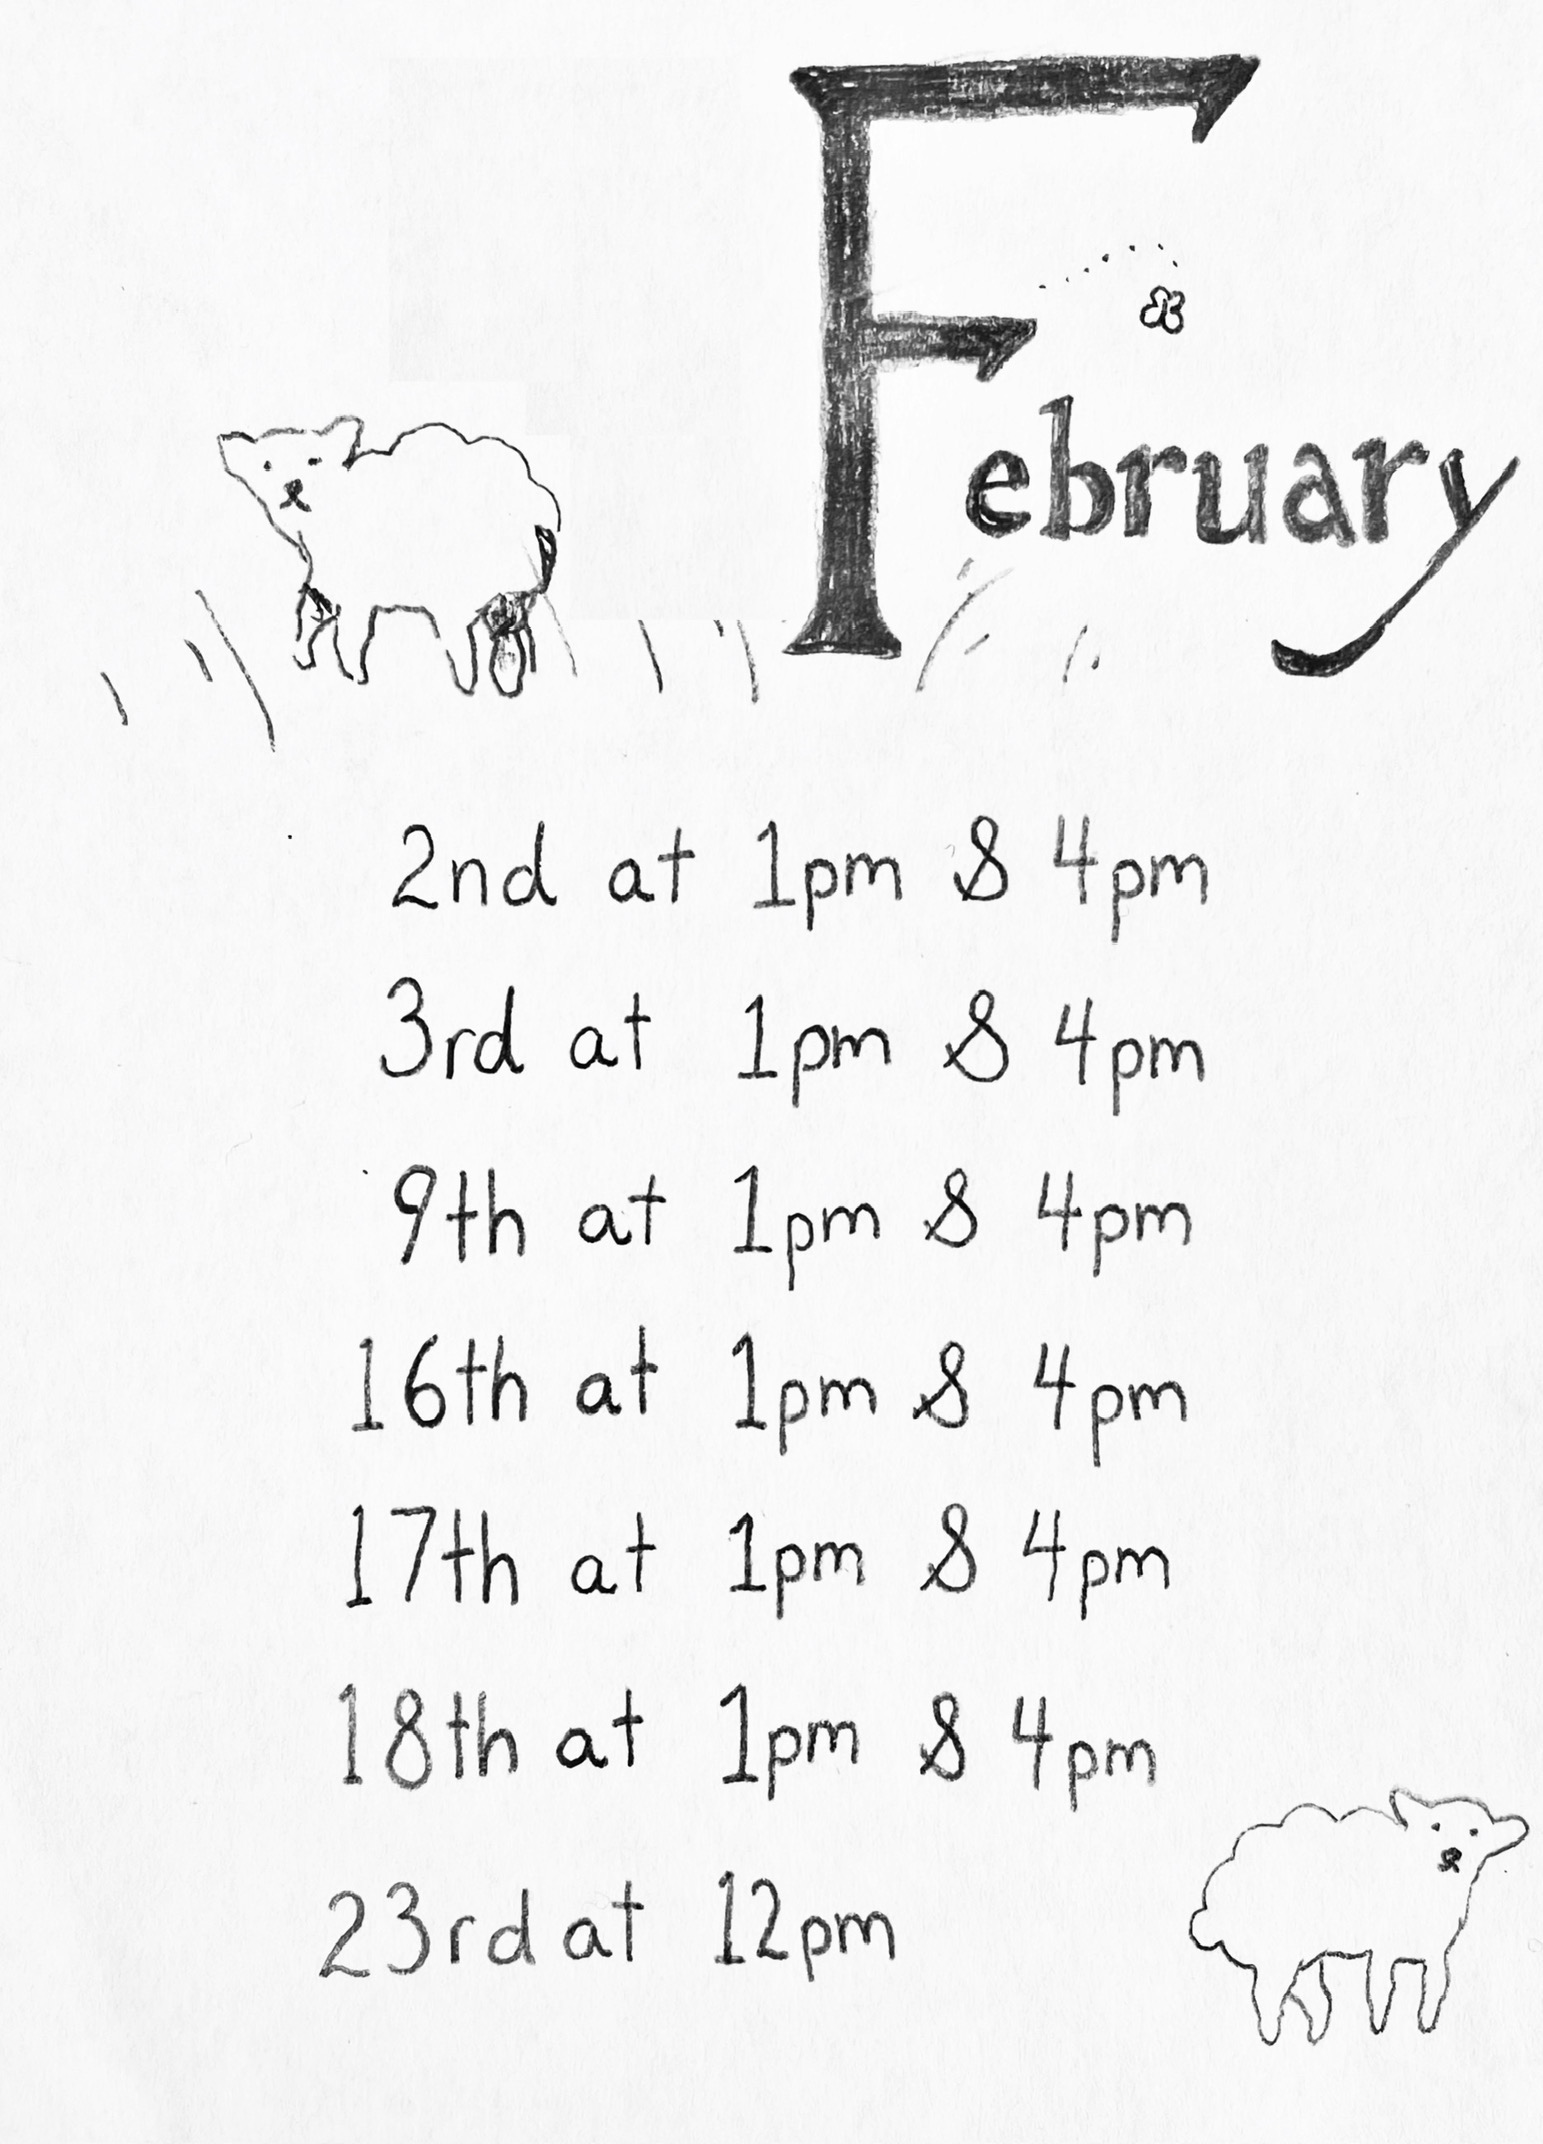 February
2nd at 1pm & 4pm
3rd at 1pm & 4pm
9th at 1pm & 4pm
16th at 1pm & 4pm
17th at 1pm & 4pm
18th at 1pm & 4pm
23rd at 12pm